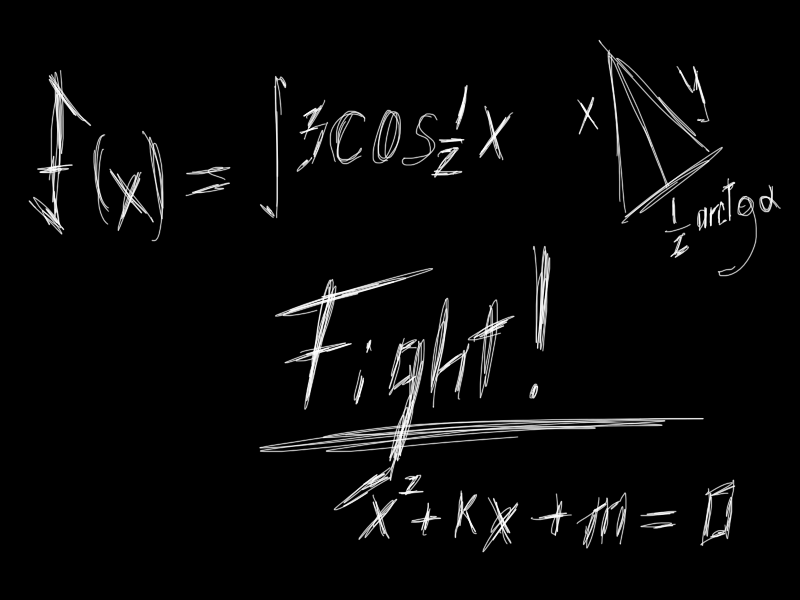 f(x) = ∫ 3cos 1/2 x
x y
1/2 arctg α
Fight!
x² + kx + m = 0